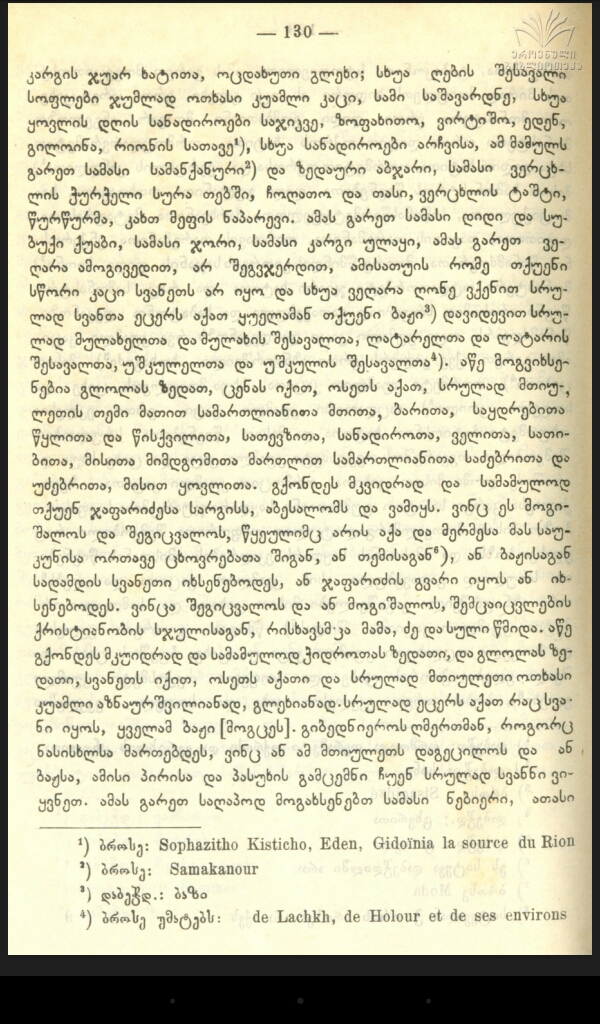 — 130 —
ეროვნული
ბიბლიოთეკა
კარგის ჯუარ ხატითა, ოცდახუთი გლეხი; სხუა ღების შესავალი
სოფლები ჯუმლად ოთხასი კუამლი კაცი, სამი საშავარდნე, სხუა
ყოვლის დღის სანადიროები საჯიკვე, ზოფახითო, ვირტიშო, ედენ,
გილოინა, რიონის სათავე¹), სხუა სანადიროები არჩვისა, ამ მამულს
გარეთ სამასი სამანქანური²) და ზედაური აბჯარი, სამასი ვერცხ-
ლის ჭურჭელი სურა თებში, ჩოღათო და თასი, ვერცხლის ტაშტი,
წურწურმა, კახთ მეფის ნაპარევი. ამას გარეთ სამასი დიდი და სუ-
ბუქი ქუაბი, სამასი ჯორი, სამასი კარგი ულაყი, ამას გარეთ ვე-
ღარა ამოგივედით, არ შეგვჯერდით, ამისათჳს რომე თქუენი
სწორი კაცი სვანეთს არ იყო და სხუა ვეღარა ღონე ვქენით სრუ-
ლად სვანთა ეცერს აქათ ყუელამან თქუენი ბაჟი³) დავიდევით სრუ-
ლად მულახელთა და მულახის შესავალთა, ლატარელთა და ლატარის
შესავალთა, უშკულელთა და უშკულის შესავალთა⁴). აწე მოგვიხსე-
ნებია გლოლას ზედათ, ცენას იქით, ოსეთს აქათ, სრულად მთიუ-
ლეთის თემი მათით სამართლიანითა მთითა, ბარითა, საყდრებითა
წყლითა და წისქვილითა, სათევზითა, სანადიროთა, ველითა, სათი-
ბითა, მისითა მიმდგომითა მართლით სამართლიანითა საძებრითა და
უძებრითა, მისით ყოვლითა. გქონდეს მკვიდრად და სამამულოდ
თქუენ ჯაფარიძესა სარგისს, აბესალომს და ვამიყს. ვინც ეს მოგი-
შალოს და შეგიცვალოს, წყეულიმც არის აქა და მერმესა მას საუ-
კუნისა ორთავე ცხოვრებათა შიგან, ან თემისაგან⁵), ან ბაჟისაგან
სადამდის სვანეთი იხსენებოდეს, ან ჯაფარიძის გვარი იყოს ან იხ-
სენებოდეს. ვინცა შეგიცვალოს და ან მოგიშალოს, შემცაიცვლების
ქრისტიანობის სჯულისაგან, რისხავსმცა მამა, ძე და სული წმიდა. აწე
გქონდეს მკუიდრად და სამამულოდ ჭიდროთას ზედათი, და გლოლას ზე-
დათი, სვანეთს იქით, ოსეთს აქათი და სრულად მთიულეთი ოთხასი
კუამლი აზნაურშვილიანად, გლეხიანად. სრულად ეცერს აქათ რაც სვა-
ნი იყოს, ყველამ ბაჟი [მოგცეს]. გიბედნიეროს ღმერთმან, როგორც
ნასისხლსა მართებდეს, ვინც ან ამ მთიულეთს დაგეცილოს და ან
ბაჟსა, ამისი პირისა და პასუხის გამცემნი ჩუენ სრულად სვანნი ვი-
ყვნეთ. ამას გარეთ საღაპოდ მოგახსენებთ სამასი ნებიერი, ათასი
¹) ბროსე: Sophazitho Kisticho, Eden, Gidoïnia la source du Rion
²) ბროსე: Samakanour
³) დაბეჭდ.: ბაზი
⁴) ბროსე უმატებს: de Lachkh, de Holour et de ses environs